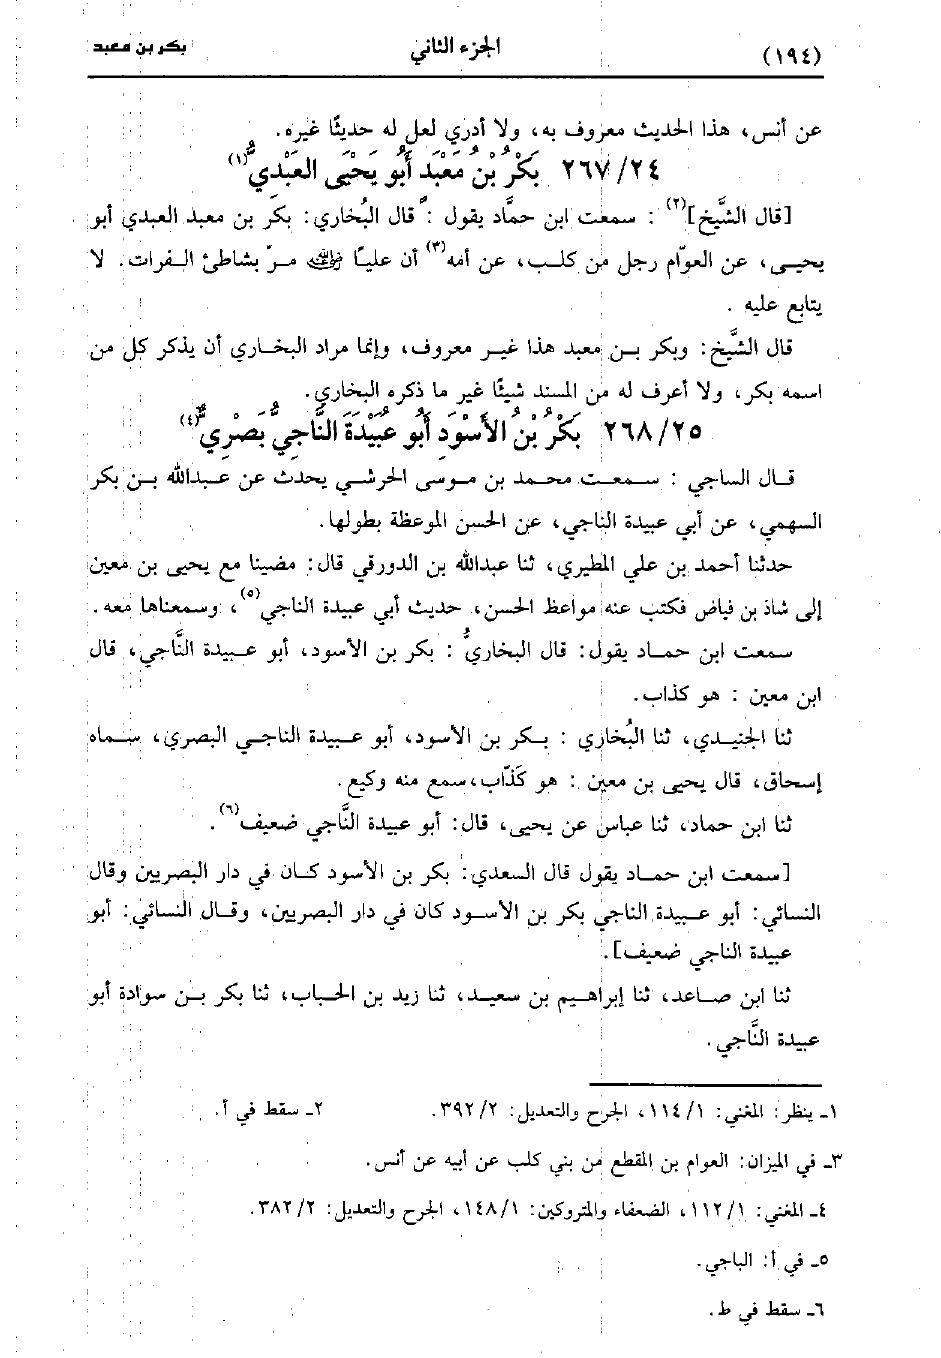 (١٩٤) الجزء الثاني بكر بن معبد
عن أنس، هذا الحديث معروف به، ولا أدري لعل له حديثًا غيره.
٢٦٧/٢٤ بَكْرُ بْنُ مَعْبَدٍ أَبُو يَحْيَى العَبْدِيُّ(١)
[قال الشَّيخ](٢) : سمعت ابن حمَّاد يقول : قال البُخاري: بكر بن معبد العبدي أبو
يحيى، عن العوّام رجل من كلب، عن أمه(٣) أن عليًا رضي الله عنه مرّ بشاطئ الفرات. لا
يتابع عليه .
قال الشَّيخ: وبكر بن معبد هذا غير معروف، وإنما مراد البخاري أن يذكر كل من
اسمه بكر، ولا أعرف له من المسند شيئًا غير ما ذكره البخاري.
٢٦٨/٢٥ بَكْرُ بْنُ الأَسْوَدِ أَبُو عُبَيْدَةَ النَّاجِيُّ بَصْرِيٌّ(٤)
قال الساجي : سمعت محمد بن موسى الحرشي يحدث عن عبدالله بن بكر
السهمي، عن أبي عبيدة الناجي، عن الحسن الموعظة بطولها.
حدثنا أحمد بن علي المطيري، ثنا عبدالله بن الدورقي قال: مضينا مع يحيى بن معين
إلى شاذ بن فياض فكتب عنه مواعظ الحسن، حديث أبي عبيدة الناجي(٥)، وسمعناها معه.
سمعت ابن حماد يقول: قال البخاريُّ : بكر بن الأسود، أبو عبيدة النَّاجي، قال
ابن معين : هو كذاب.
ثنا الجنيدي، ثنا البُخاري : بكر بن الأسود، أبو عبيدة الناجي البصري، سماه
إسحاق، قال يحيى بن معين : هو كَذّاب، سمع منه وكيع.
ثنا ابن حماد، ثنا عباس عن يحيى، قال: أبو عبيدة النَّاجي ضعيف(٦).
[سمعت ابن حماد يقول قال السعدي: بكر بن الأسود كان في دار البصريين وقال
النسائي: أبو عبيدة الناجي بكر بن الأسود كان في دار البصريين، وقال النسائي: أبو
عبيدة الناجي ضعيف].
ثنا ابن صاعد، ثنا إبراهيم بن سعيد، ثنا زيد بن الحباب، ثنا بكر بن سوادة أبو
عبيدة النَّاجي.
١ـ ينظر: المغني: ١١٤/١، الجرح والتعديل: ٣٩٢/٢. ٢ـ سقط في أ.
٣ـ في الميزان: العوام بن المقطع من بني كلب عن أبيه عن أنس.
٤ـ المغني: ١١٢/١، الضعفاء والمتروكين: ١٤٨/١، الجرح والتعديل: ٣٨٢/٢.
٥ـ في أ: الباجي.
٦ـ سقط في ط.